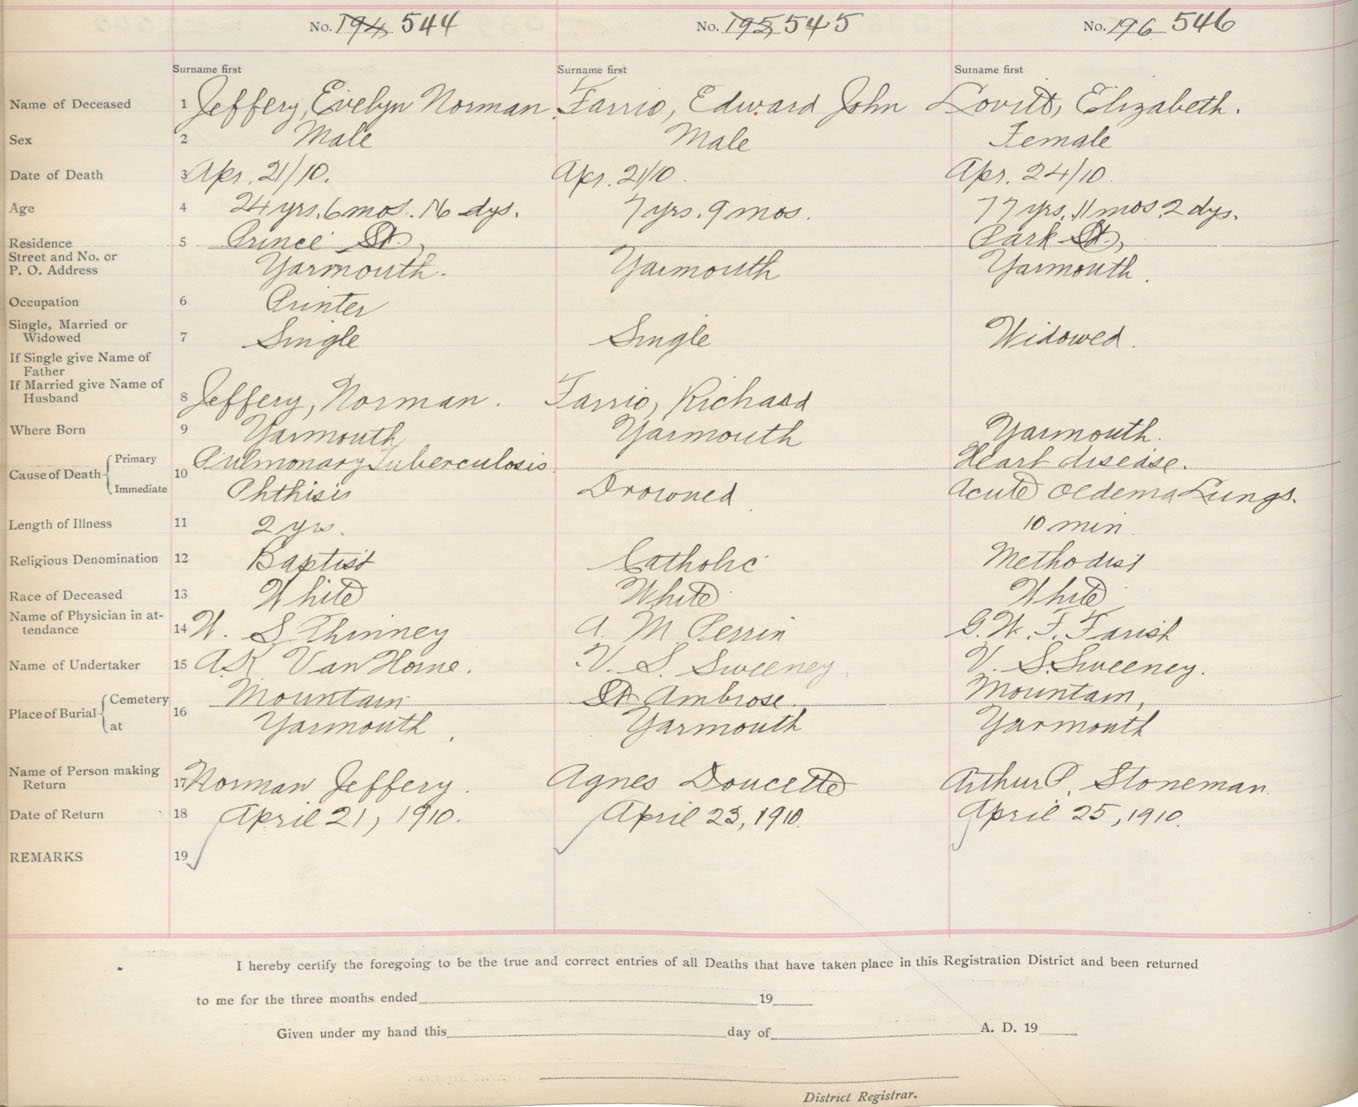 No. 194 544 No. 195 545 No. 196 546
Surname first Surname first Surname first
Name of Deceased 1 Jeffery, Evelyn Norman. Farrio, Edward John Lovitt, Elizabeth.
Sex 2 Male Male Female
Date of Death 3 Apr. 21/10. Apr. 21/10. Apr. 24/10.
Age 4 24 yrs. 6 mos. 16 dys. 7 yrs. 9 mos. 77 yrs. 11 mos. 2 dys.
Residence 5 Prince St., Park St.,
Street and No. or
P. O. Address Yarmouth. Yarmouth Yarmouth.
Occupation 6 Printer
Single, Married or
Widowed 7 Single Single Widowed.
If Single give Name of
Father
If Married give Name of
Husband 8 Jeffery, Norman. Farrio, Richard
Where Born 9 Yarmouth Yarmouth Yarmouth.
Cause of Death Primary 10 Pulmonary Tuberculosis Heart disease.
Immediate Phthisis Drowned Acute Oedema Lungs.
Length of Illness 11 2 yrs. 10 min
Religious Denomination 12 Baptist Catholic Methodist
Race of Deceased 13 White White White
Name of Physician in at-
tendance 14 W. S. Phinney A. M. Perrin G. W. T. Farish
Name of Undertaker 15 A. K. Van Horne. V. S. Sweeney V. S. Sweeney.
Place of Burial Cemetery 16 Mountain St Ambrose. Mountain,
at Yarmouth. Yarmouth Yarmouth
Name of Person making
Return 17 Norman Jeffery. Agnes Doucette Arthur P. Stoneman.
Date of Return 18 April 21, 1910. April 23, 1910. April 25, 1910.
REMARKS 19
I hereby certify the foregoing to be the true and correct entries of all Deaths that have taken place in this Registration District and been returned
to me for the three months ended 19
Given under my hand this day of A. D. 19
District Registrar.